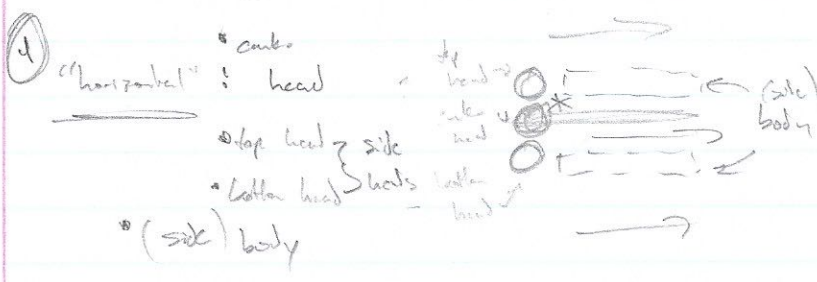 ④
"horizontal" : head
• top head } side
• bottom head } heads
• (side) body
top
head
head
bottom
head
(side)
body